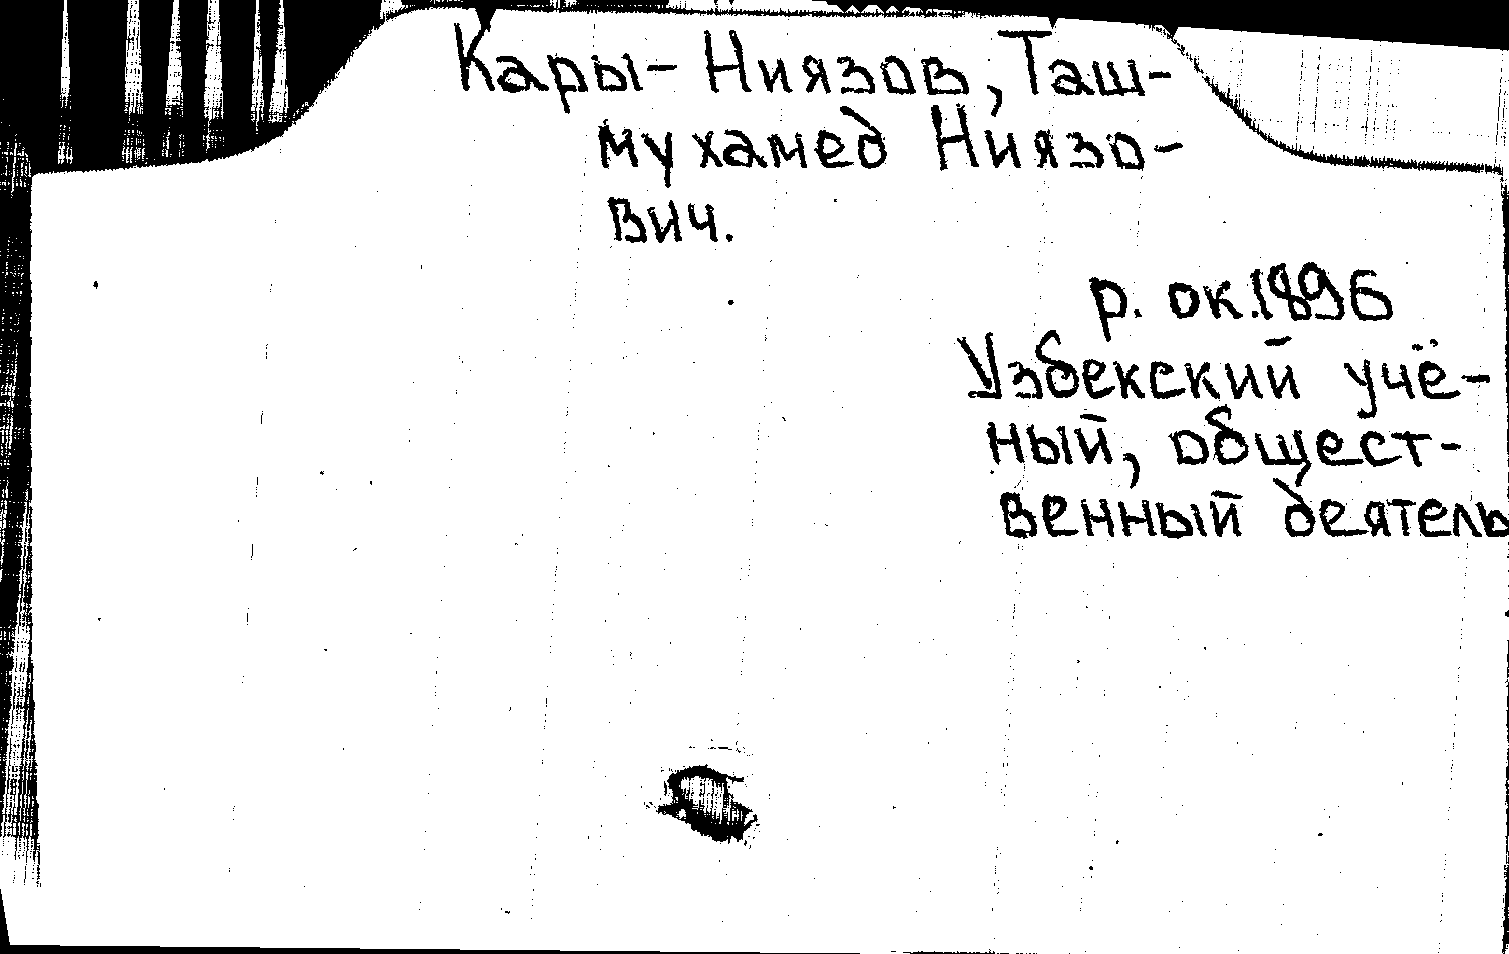 Кары-Ниязов, Таш-
мухамед Ниязо-
вич.
р. ок.1896
Узбекский учё-
ный, общест-
венный деятель